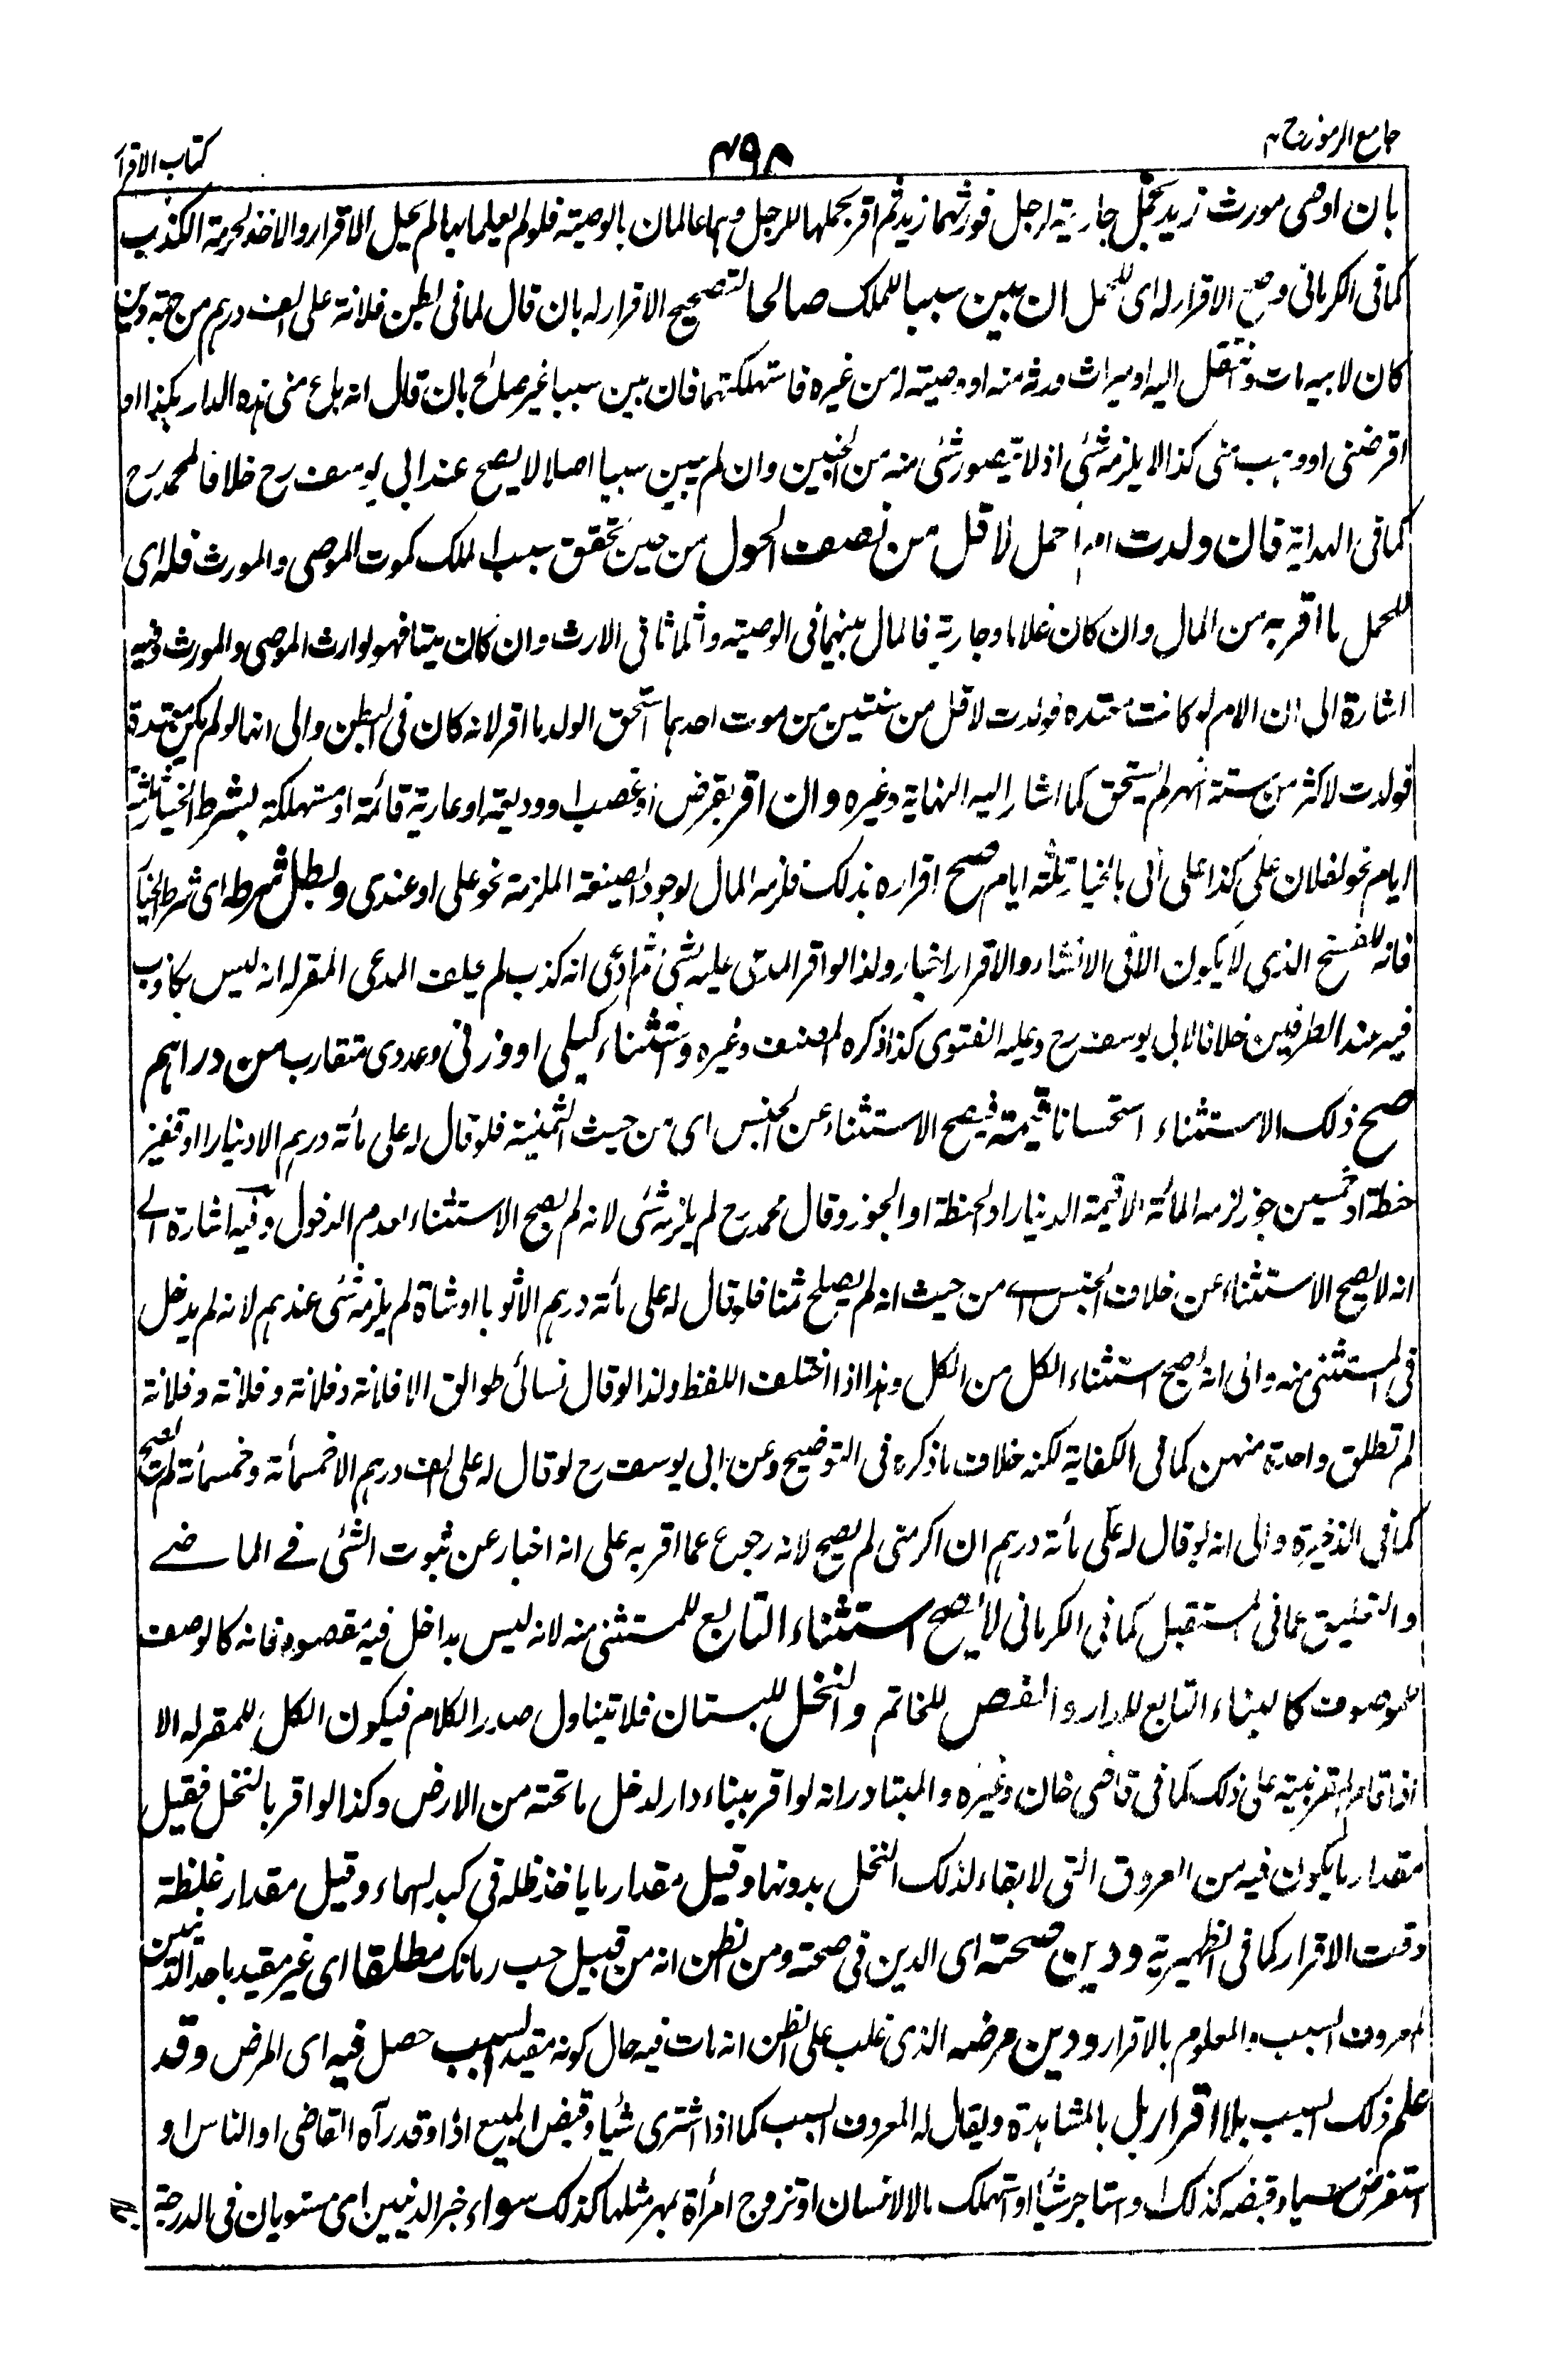 جامع الرموز ج ٢
٤٩٨
كتاب الاقرار
بان اوصى مورث زيد بحمل جارية لرجل فورثها زيد ثم اقر بحملها للرجل وهما عالمان بالوصية فلو لم يعلما بها لم يحل الاقرار والاخذ لحرمة الكذب
كما فى الكرمانى وصح الاقرار له اى للحمل ان بين سببا للملك صالحا لتصحيح الاقرار له بان قال لما فى بطن فلانة على الف درهم من جهة دين
كان لابيه مات وانتقل اليه او ميراث ورثه منه او وصية له من غيره فاستهلكتها فان بين سببا غير صالح بان قال انه باع منى هذه الدار بكذا او
اقرضنى او وهب منى كذا لا يلزمه شئ اذ لا يتصور شئ منه من الجنين وان لم يبين سببا اصلا لا يصح عند ابى يوسف رح خلافا لمحمد رح
كما فى الهداية فان ولدت ام الحمل لاقل من نصف الحول من حين تحقق سبب الملك كموت الموصى والمورث فله اى
للحمل ما اقر به من المال وان كان غلاما وجارية فالمال بينهما فى الوصية واثلاثا فى الارث وان كان ميتا فهو لوارث الموصى والمورث وفيه
اشارة الى ان الام لو كانت معتدة فولدت لاقل من سنتين من موت احدهما استحق الولد ما اقر لانه كان فى البطن والى انها لو لم يكن معتدة
فولدت لاكثر من ستة اشهر لم يستحق كما اشار اليه النهاية وغيره وان اقر بقرض او غصب او وديعة او عارية قائمة او مستهلكة بشرط الخيار ثلثة
ايام نحو لفلان على كذا على انى بالخيار ثلثة ايام صح اقراره بذلك فلزمه المال لوجود الصيغة الملزمة نحو على او عندى وبطل شرطه اى شرط الخيار
فانه للفسخ الذى لا يكون الا فى الانشاء والاقرار اخبار ولذا لو اقر المدعى عليه بشئ ثم ادعى انه كذب لم يحلف المدعى المقر له انه ليس بكاذب
فيه عند الطرفين خلافا لابى يوسف رح وعليه الفتوى كذا ذكره المصنف وغيره واستثناء كيلى او وزنى وعددى متقارب من دراهم
صح ذلك الاستثناء استحسانا قيمة فيصح الاستثناء عن الجنس اى من حيث الثمنية فلو قال له على مائة درهم الا دينارا او قفيز
حنطة او خمسين جوز لزمه المائة الا قيمة الدينار او الحنطة او الجوز وقال محمد رح لم يلزمه شئ لانه لم يصح الاستثناء لعدم الدخول وفيه اشارة الى
انه لا يصح الاستثناء عن خلاف الجنس من حيث انه لم يصلح ثمنا فلو قال له على مائة درهم الا ثوبا او شاة لم يلزمه شئ عندهم لانه لم يدخل
فى المستثنى منه والى انه يصح استثناء الكل من الكل وهذا اذا اختلف اللفظ ولذا لو قال نسائى طوالق الا فلانة وفلانة وفلانة وفلانة
لم تطلق واحدة منهن كما فى الكفاية لكنه خلاف ما ذكره فى التوضيح وعن ابى يوسف رح لو قال له على الف درهم الا خمسمائة وخمسمائة لم يصح
كما فى الذخيرة والى انه لو قال له على مائة درهم ان اكرمنى لم يصح لانه رجوع عما اقر به على انه اخبار عن ثبوت الشئ فى الماضى
والتعليق عما فى المستقبل كما فى الكرمانى لا يصح استثناء التابع للمستثنى منه لانه ليس بداخل فيه مقصودا فانه كالوصف
للموصوف كالبناء التابع للدار والفص للخاتم والنخل للبستان فلا تتناول صدر الكلام فيكون الكل للمقر له الا
اذا اقام المقر بينة على ذلك كما فى قاضى خان وغيره والمتبادر انه لو اقر ببناء دار لدخل ما تحته من الارض وكذا لو اقر بالنخل فقيل
مقدار ما يكون فيه من العروق التى لا بقاء لذلك النخل بدونها وقيل مقدار ما ياخذ ظله فى كبد السماء وقيل مقدار غلظة
وقت الاقرار كما فى الظهيرية ودين صحته اى الدين فى صحته ومن الظن انه من قبيل حب رمانك مطلقا اى غير مقيد باحد الدينين
المعروف السبب والمعلوم بالاقرار ودين مرضه الذى غلب على الظن انه مات فيه حال كونه مقيد لسبب حصل فيه اى المرض وقد
علم ذلك السبب بلا اقرار بل بالمشاهدة ويقال له المعروف السبب كما اذا اشترى شيئا وقبض المبيع اذا وقد رآه القاضى او الناس او
استقرض شيئا وقبضه كذلك او استاجر شيئا او استهلك مالا لانسان او تزوج امرأة بمهر مثلها كذلك سواء خبر الدينين اى مستويان فى الدرجة